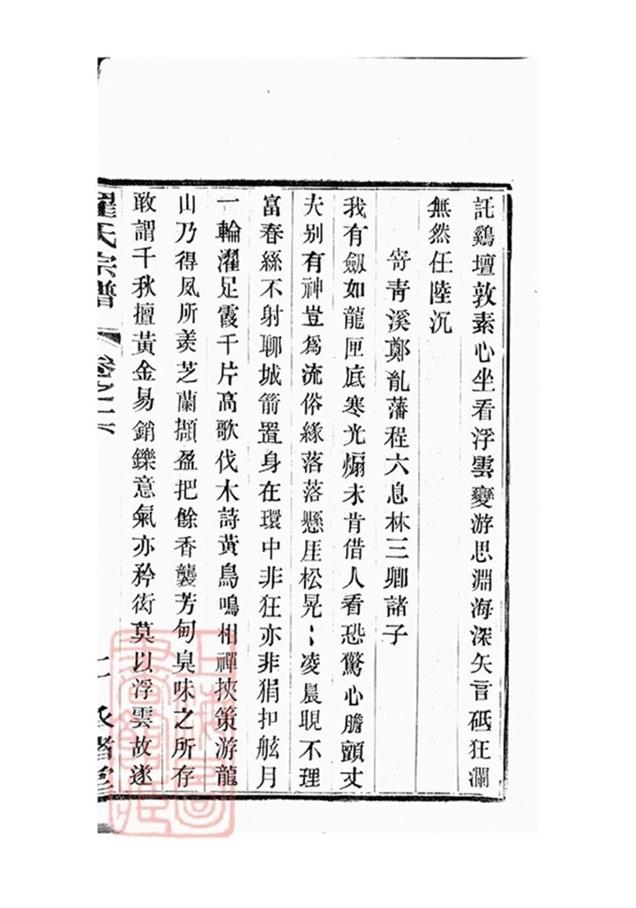 託鷄壇敦素心坐看浮雲變游思淵海深矢言砥狂瀾
無然任陸沉
寄青溪鄭胤藩程六息林三卿諸子
我有劔如龍匣底寒光煸未肯借人看恐驚心膽顫丈
夫别有神豈為流俗緣落落懸厓松晃〻凌晨睍不理
富春絲不射聊城箭置身在環中非狂亦非狷扣舷月
一輪濯足霞千片高歌伐木詩黄鳥鳴相禪挾策游龍
山乃得夙所羡芝蘭擷盈把餘香襲芳甸臭味之所存
敢謂千秋擅黄金易銷鑠意氣亦矜衒莫以浮雲故遂
羅氏宗譜 卷之十六